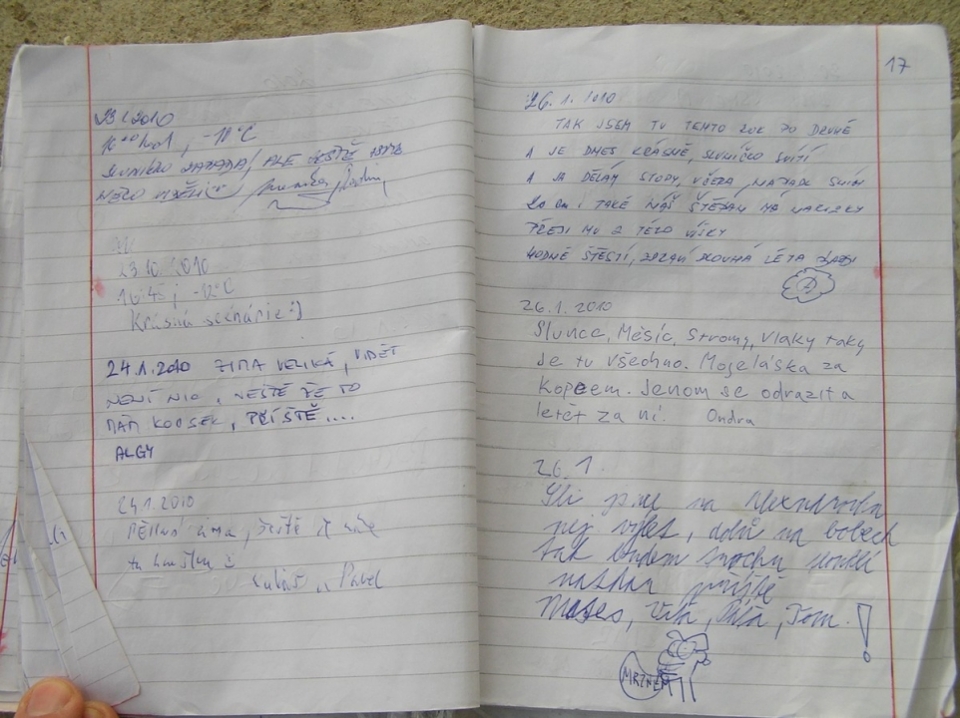 23.1.2010
16 00 hod, -11°C
SLUNÍČKO ZAPADÁ, ALE JEŠTĚ
23.10.2010
16:45, -12°C
Krásná scenárie :)
24.1.2010 ZIMA VELIKÁ, VIDĚT
NENÍ NIC, JEŠTĚ ŽE TO
MÁM KOUSEK, PŘÍŠTĚ....
ALGY
24.1.2010
Pěkná zima, ještě že
tu
Pavel
17
26. 1. 2010
TAK JSEM TU TENTO ROK PO DRUHÉ
A JE DNES KRÁSNĚ, SLUNÍČKO SVÍTÍ
A JÁ DĚLÁM STOPY, VČERA NAPADL SNÍH
20 cm i TAKÉ NÁŠ ŠTĚPÁN MÁ
PŘEJI MU Z TÉTO VÝŠKY
HODNĚ ŠTĚSTÍ, ZDRAVÍ DLOUHÁ LÉTA
26.1.2010
Slunce, Měsíc, Stromy, Vlaky taky
Je tu všechno. Moje láska za
Kopcem. Jenom se odrazit a
letět za ní. Ondra
26.1.
Šli jsme na
výlet, dolů na bobech
tak budem trochu
nazdar příště
Víťa, Tom. !
MRZNEM